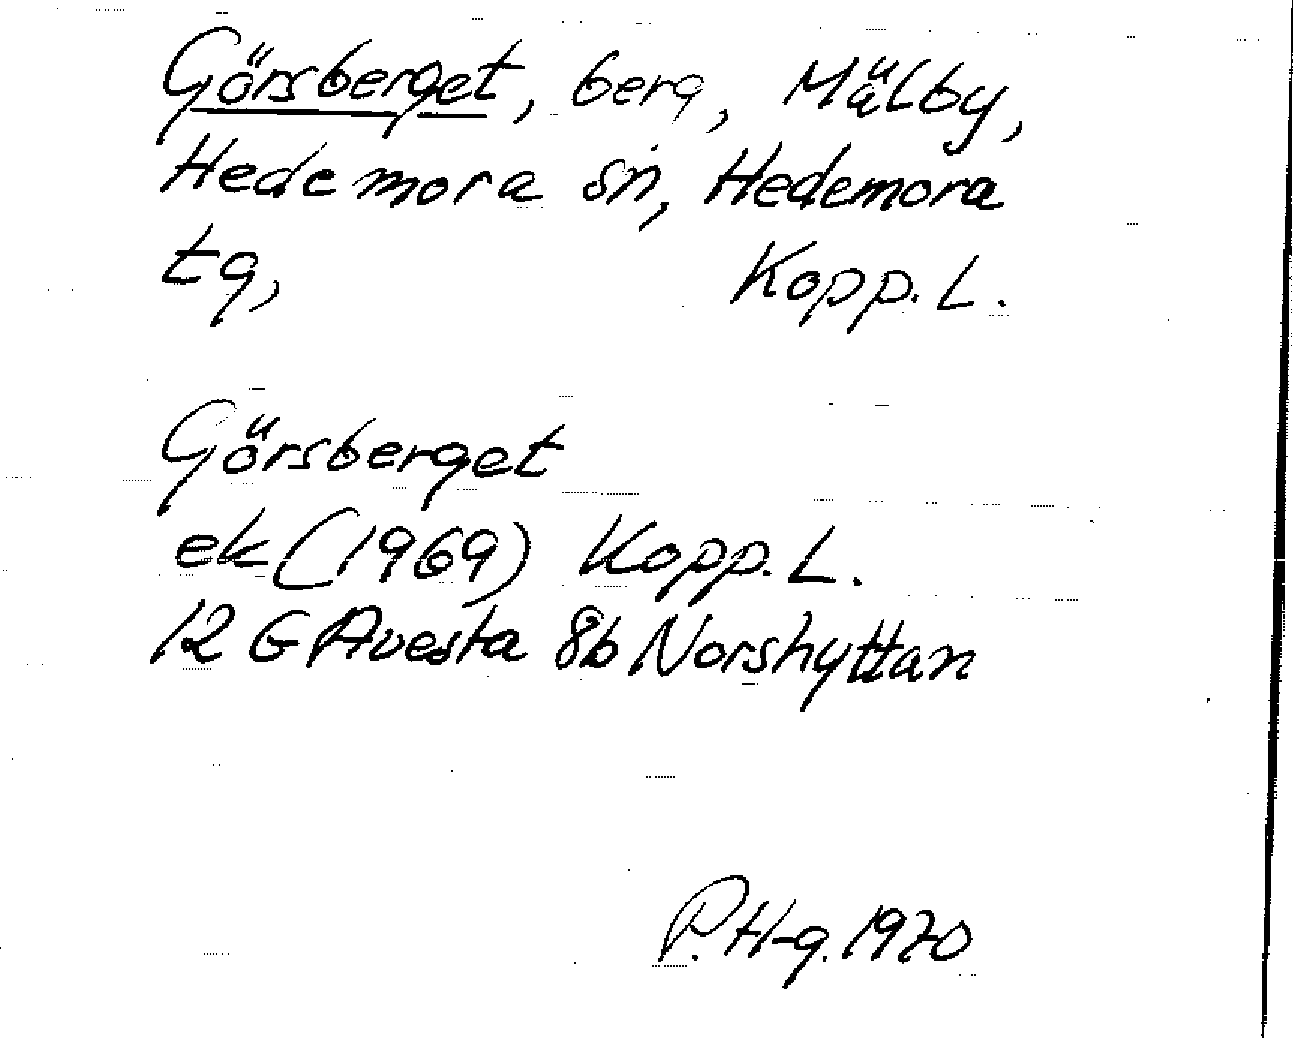 Görsberget, berg, Mälby,
Hedemora sn, Hedemora
tg, Kopp. L.
Görsberget
ek (1969) Kopp. L.
12 G Avesta 8b Norshyttan
P. H-g. 1970